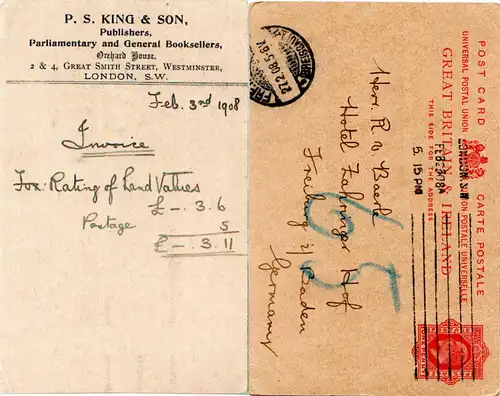 P. S. KING & SON,
Publishers,
Parliamentary and General Booksellers,
Orchard House,
2 & 4, GREAT SMITH STREET, WESTMINSTER,
LONDON, S.W.
Feb. 3rd 1908
Invoice
Fox: Rating of Land Values
£ —. 3. 6
Postage 5
£ —. 3. 11
POST CARD CARTE POSTALE
UNIVERSAL POSTAL UNION UNION POSTALE UNIVERSELLE
GREAT BRITAIN & IRELAND
THIS SIDE FOR THE ADDRESS
LONDON
FEB 23 08
5. 15 PM
ONE PENNY
27 2 08 5-6V.
Herr. R. v. Baerle
Hotel Zahringer Hof
Freiburg i/Baden
Germany
65